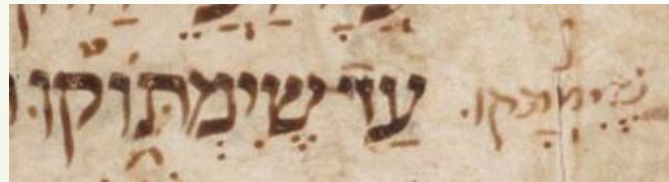 עַד שֶׁיִמְתּוֹקוּ
שֶׁיִמָתקו